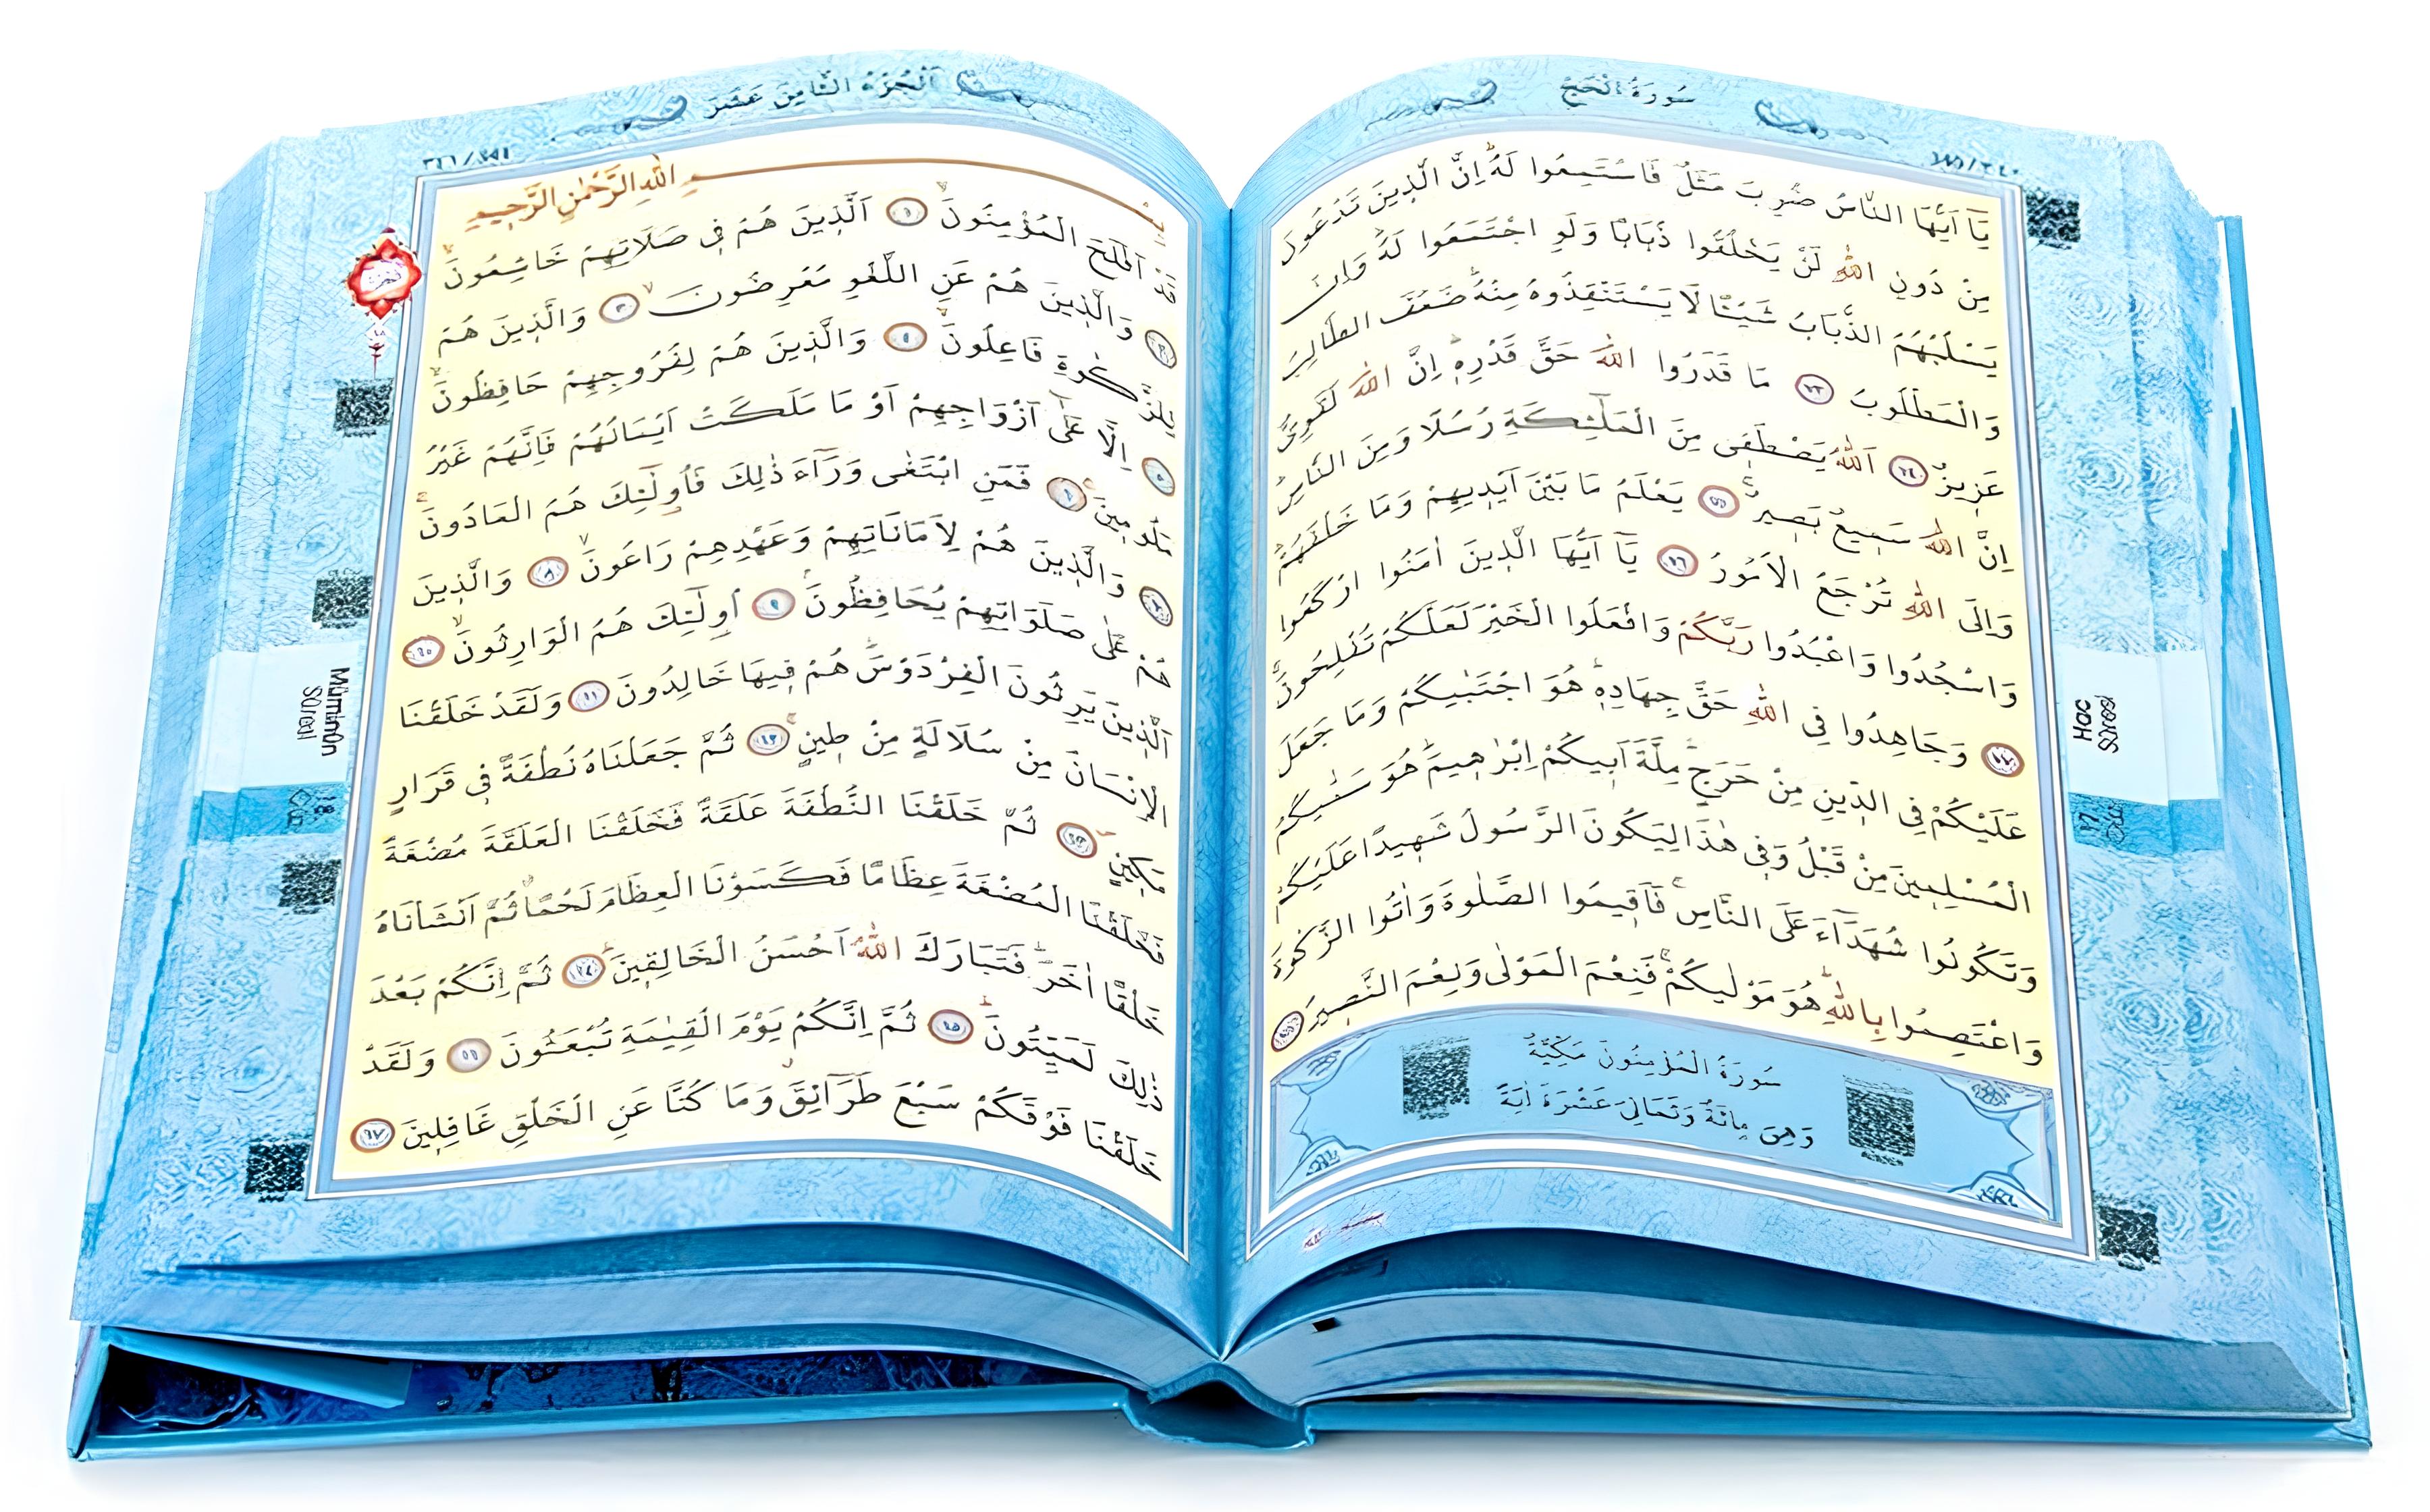 سُورَةُ الْحَجِّ
يَٓا اَيُّهَا النَّاسُ ضُرِبَ مَثَلٌ فَاسْتَمِعُوا لَهُ اِنَّ الَّذِينَ تَدْعُونَ
مِنْ دُونِ اللّٰهِ لَنْ يَخْلُقُوا ذُبَابًا وَلَوِ اجْتَمَعُوا لَهُ وَاِنْ
يَسْلُبْهُمُ الذُّبَابُ شَيْئًا لَا يَسْتَنْقِذُوهُ مِنْهُ ضَعُفَ الطَّالِبُ
وَالْمَطْلُوبُ ٧٣ مَا قَدَرُوا اللّٰهَ حَقَّ قَدْرِهِ اِنَّ اللّٰهَ لَقَوِيٌّ
عَزِيزٌ ٧٤ اَللّٰهُ يَصْطَفِى مِنَ الْمَلٰٓئِكَةِ رُسُلًا وَمِنَ النَّاسِ
اِنَّ اللّٰهَ سَمِيعٌ بَصِيرٌ ٧٥ يَعْلَمُ مَا بَيْنَ اَيْدِيهِمْ وَمَا خَلْفَهُمْ
وَاِلَى اللّٰهِ تُرْجَعُ الْاُمُورُ ٧٦ يَٓا اَيُّهَا الَّذِينَ اٰمَنُوا ارْكَعُوا
وَاسْجُدُوا وَاعْبُدُوا رَبَّكُمْ وَافْعَلُوا الْخَيْرَ لَعَلَّكُمْ تُفْلِحُونَ
٧٧ وَجَاهِدُوا فِي اللّٰهِ حَقَّ جِهَادِهِ هُوَ اجْتَبٰيكُمْ وَمَا جَعَلَ
عَلَيْكُمْ فِي الدِّينِ مِنْ حَرَجٍ مِلَّةَ اَبِيكُمْ اِبْرٰهِيمَ هُوَ سَمّٰيكُمُ
الْمُسْلِمِينَ مِنْ قَبْلُ وَفِي هٰذَا لِيَكُونَ الرَّسُولُ شَهِيدًا عَلَيْكُمْ
وَتَكُونُوا شُهَدَٓاءَ عَلَى النَّاسِ فَاَقِيمُوا الصَّلٰوةَ وَاٰتُوا الزَّكٰوةَ
وَاعْتَصِمُوا بِاللّٰهِ هُوَ مَوْلٰيكُمْ فَنِعْمَ الْمَوْلٰى وَنِعْمَ النَّصِيرُ ٧٨
سُورَةُ الْمُؤْمِنُونَ مَكِّيَّةٌ
وَهِىَ مِائَةٌ وَثَمَانِىَ عَشْرَةَ اٰيَةً
Hac
Sûresi
اَلْجُزْءُ الثَّامِنَ عَشَرَ
بِسْمِ اللّٰهِ الرَّحْمٰنِ الرَّحِيمِ
قَدْ اَفْلَحَ الْمُؤْمِنُونَ ١ اَلَّذِينَ هُمْ فِي صَلَاتِهِمْ خَاشِعُونَ
٢ وَالَّذِينَ هُمْ عَنِ اللَّغْوِ مُعْرِضُونَ ٣ وَالَّذِينَ هُمْ
لِلزَّكٰوةِ فَاعِلُونَ ٤ وَالَّذِينَ هُمْ لِفُرُوجِهِمْ حَافِظُونَ
٥ اِلَّا عَلٰٓى اَزْوَاجِهِمْ اَوْ مَا مَلَكَتْ اَيْمَانُهُمْ فَاِنَّهُمْ غَيْرُ
مَلُومِينَ ٦ فَمَنِ ابْتَغٰى وَرَٓاءَ ذٰلِكَ فَاُولٰٓئِكَ هُمُ الْعَادُونَ
٧ وَالَّذِينَ هُمْ لِاَمَانَاتِهِمْ وَعَهْدِهِمْ رَاعُونَ ٨ وَالَّذِينَ
هُمْ عَلٰى صَلَوَاتِهِمْ يُحَافِظُونَ ٩ اُولٰٓئِكَ هُمُ الْوَارِثُونَ ١٠
اَلَّذِينَ يَرِثُونَ الْفِرْدَوْسَ هُمْ فِيهَا خَالِدُونَ ١١ وَلَقَدْ خَلَقْنَا
الْاِنْسَانَ مِنْ سُلَالَةٍ مِنْ طِينٍ ١٢ ثُمَّ جَعَلْنَاهُ نُطْفَةً فِي قَرَارٍ
مَكِينٍ ١٣ ثُمَّ خَلَقْنَا النُّطْفَةَ عَلَقَةً فَخَلَقْنَا الْعَلَقَةَ مُضْغَةً
فَخَلَقْنَا الْمُضْغَةَ عِظَامًا فَكَسَوْنَا الْعِظَامَ لَحْمًا ثُمَّ اَنْشَاْنَاهُ
خَلْقًا اٰخَرَ فَتَبَارَكَ اللّٰهُ اَحْسَنُ الْخَالِقِينَ ١٤ ثُمَّ اِنَّكُمْ بَعْدَ
ذٰلِكَ لَمَيِّتُونَ ١٥ ثُمَّ اِنَّكُمْ يَوْمَ الْقِيٰمَةِ تُبْعَثُونَ ١٦ وَلَقَدْ
خَلَقْنَا فَوْقَكُمْ سَبْعَ طَرَٓائِقَ وَمَا كُنَّا عَنِ الْخَلْقِ غَافِلِينَ ١٧
Mü'minûn
Sûresi